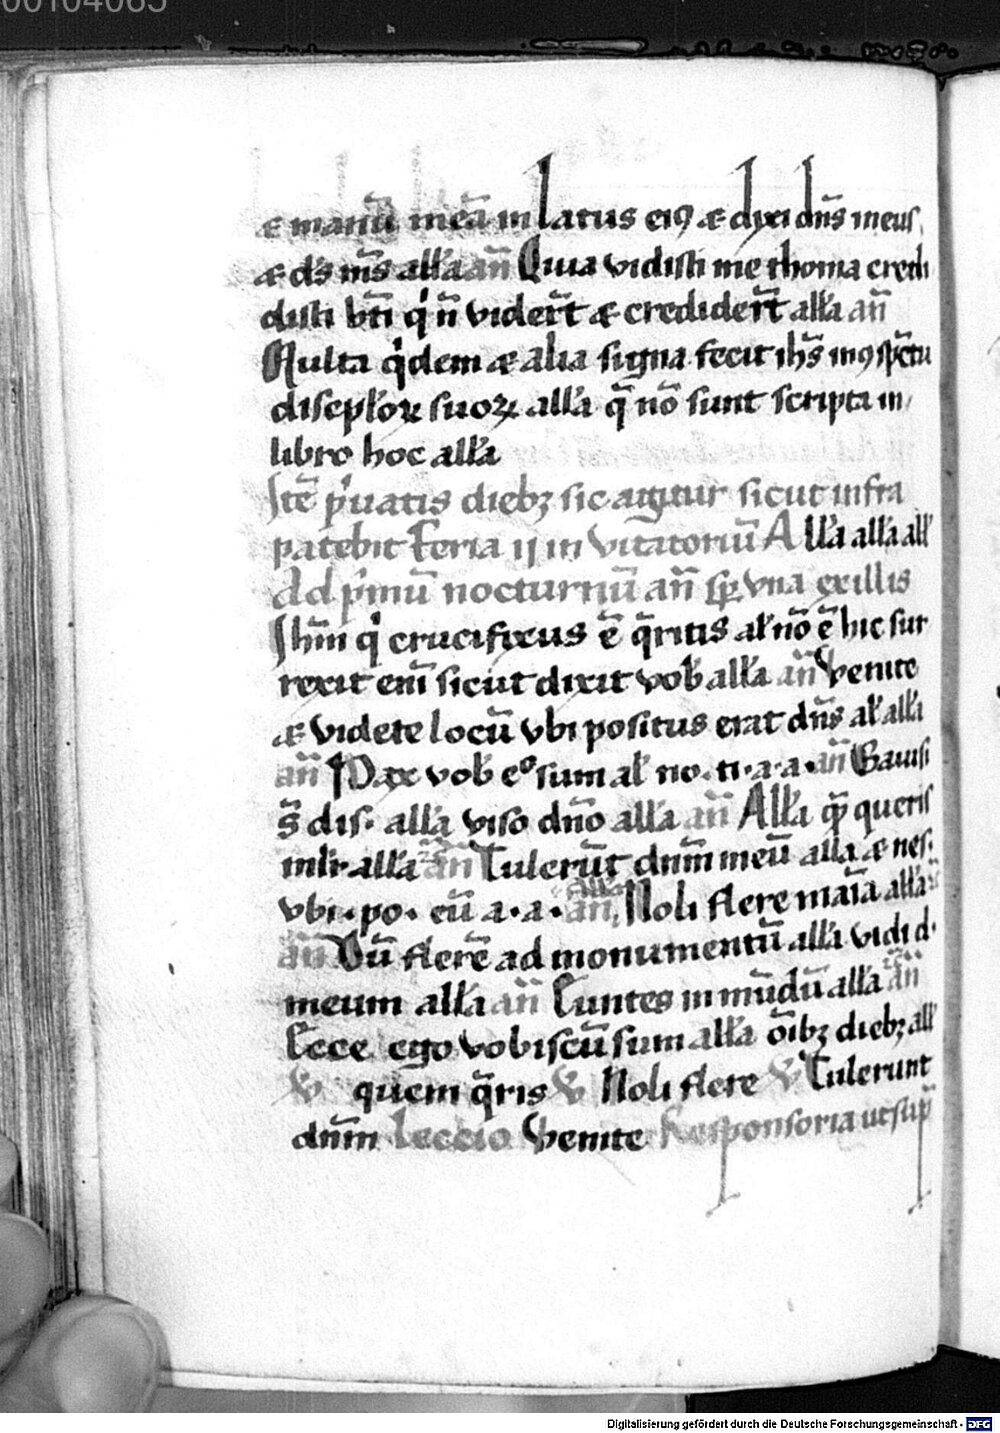 00104065
et manū meā in latus eiꝯ et dixi dn̄s meus
et ds̄ ms̄ alla an̄ Quia vidisti me thoma credi
disti bt̄i qͥ n̄ vider̄t et credider̄t alla an̄
Multa qͥdem et alia signa fecit ihs̄ in ꝯspc̄tu
discpl̓oꝝ suoꝝ alla q̄ nō sunt scripta in
libro hoc alla
Itē pͥuatis diebꝫ sic agitur sicut infra
patebit Feria ij in vitatoriū Alla alla all
Ad pͥmū nocturnū an̄ sp̄ vna ex illis
Ihm̄ qͥ crucifixus ē q̄ritis al̓ nō ē hic sur
rexit em̄ sicut dixit vob̓ alla an̄ Venite
et videte locū vbi positus erat dn̄s al̓ alla
an̄ Pax vob̓ eͦ sum al̓ no. ti. a. a. an̄ Gauisi
s̄ dis. alla viso dn̄o alla an̄ Alla qͥ queris
mlr̓ alla an̄ Tulerūt dnm̄ meū alla et nes.
vbi. po. eū a. a. an̄ alla Noli flere maīa alla
an̄ Dū flerē ad monumentū alla vidi d.
meum alla an̄ Euntes in mūdū alla an̄
Ecce ego vobiscū sum alla oībꝫ diebꝫ all
V̓ quem q̄ris V̓ Noli flere V̓ Tulerunt
dnm̄ Leccio Venite Responsoria ut sup̄
Digitalisierung gefördert durch die Deutsche Forschungsgemeinschaft - DFG